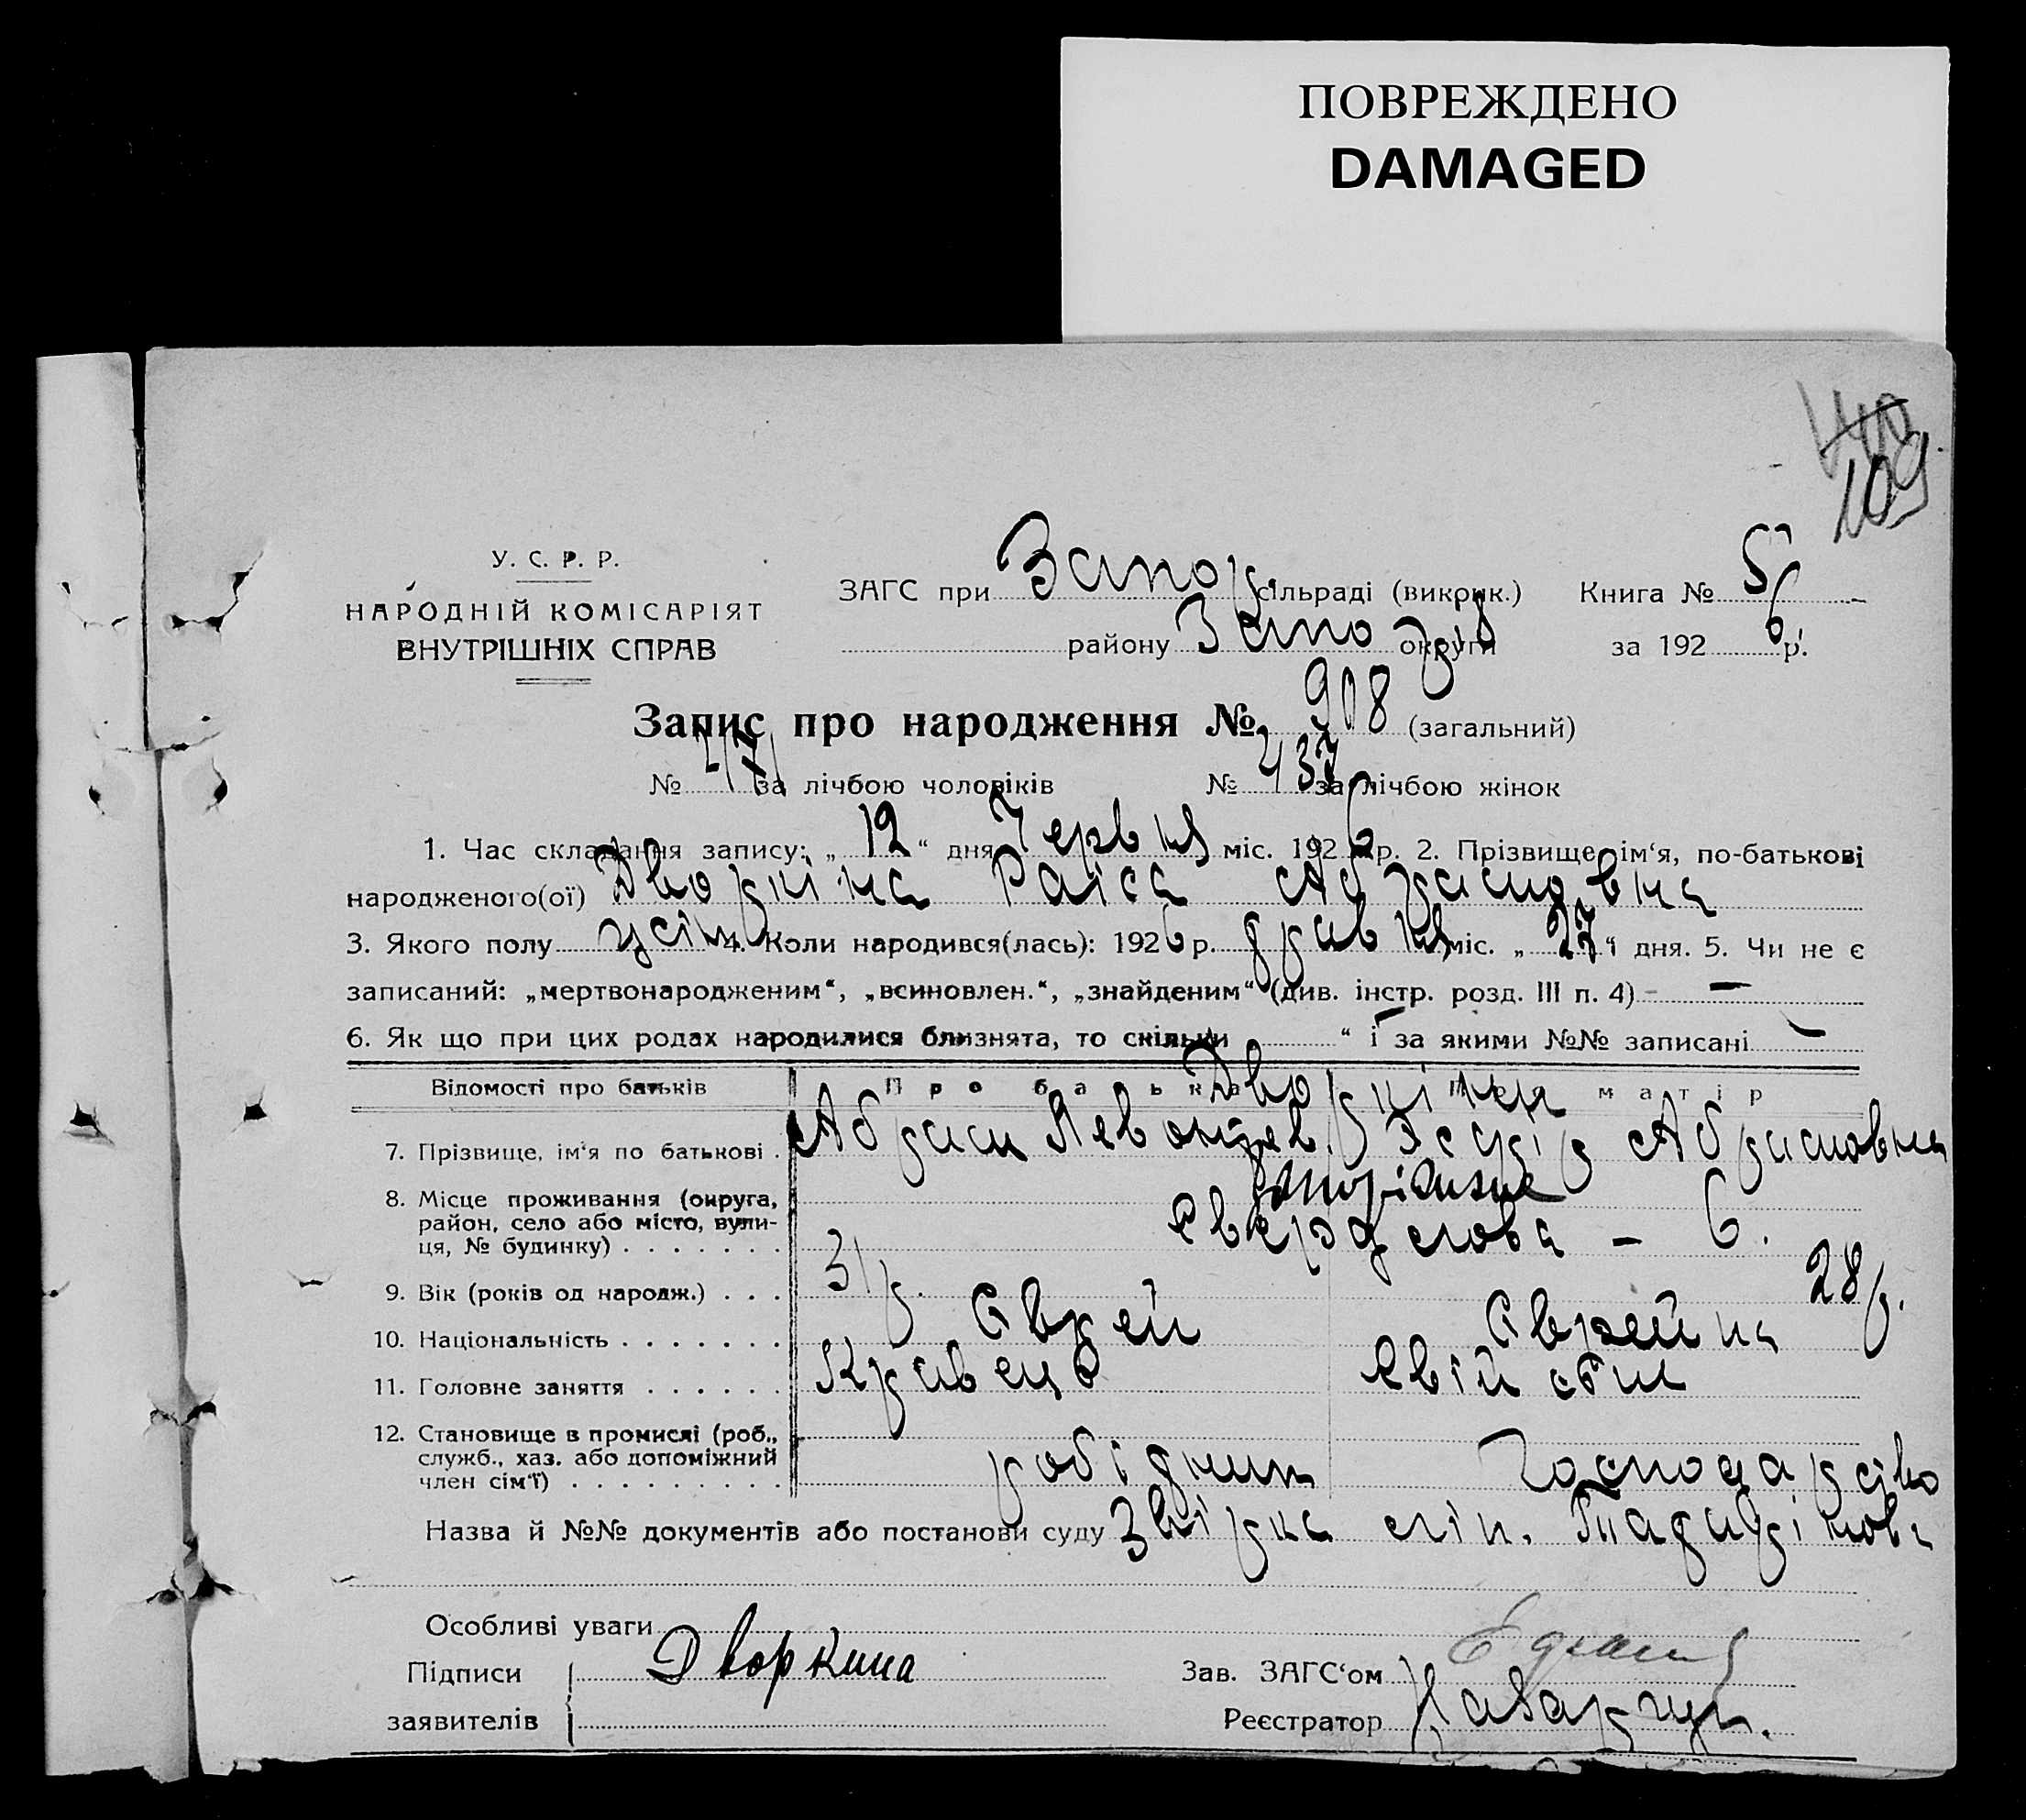 ПОВРЕЖДЕНО
DAMAGED
109
У. С. Р. Р.
НАРОДНІЙ КОМІСАРІЯТ
ВНУТРІШНІХ СПРАВ
ЗАГС при Запор. сільраді (викоик.) Книга № 5
району Запо округи за 192 6 р.
Запис про народження № 908 (загальний)
№ 471 за лічбою чоловіків № 437 за лічбою жінок
1. Час складання запису: „ 12 “ дня Червня міс. 192 6 р. 2. Прізвище, ім‘я, по-батькові
народженого(ої) Дворкіна Раіса Абрамовна
3. Якого полу жін. 4. Коли народився(лась): 192 6 р. травня міс. „ 27 “ дня. 5. Чи не є
записаний: „мертвонародженим“, „всиновлен.“, „знайденим“ (див. інстр. розд. III п. 4) —
6. Як що при цих родах народилися близнята, то скільки “ і за якими №№ записані —
Відомості про батьків Про батька Про матір
Дворкіни
7. Прізвище, ім‘я по батькові . Абрам Эсфір Абрамовна
8. Місце проживання (округа,
район, село або місто, вули-
ця, № будинку) . . . . . . .
Запоріжже
Свердлова – 6.
9. Вік (років од народж.) . . . 31 р. 28 р.
10. Національність . . . . . . . Єврей Єврейка
11. Головне заняття . . . . . . Кравець
12. Становище в промислі (роб.,
служб., хаз. або допоміжний
член сім‘ї) . . . . . . . . .
робідник Господарство
Назва й №№ документів або постанови суду
Особливі уваги
Підписи Дворкина Зав. ЗАГС‘ом
заявителів Реєстратор